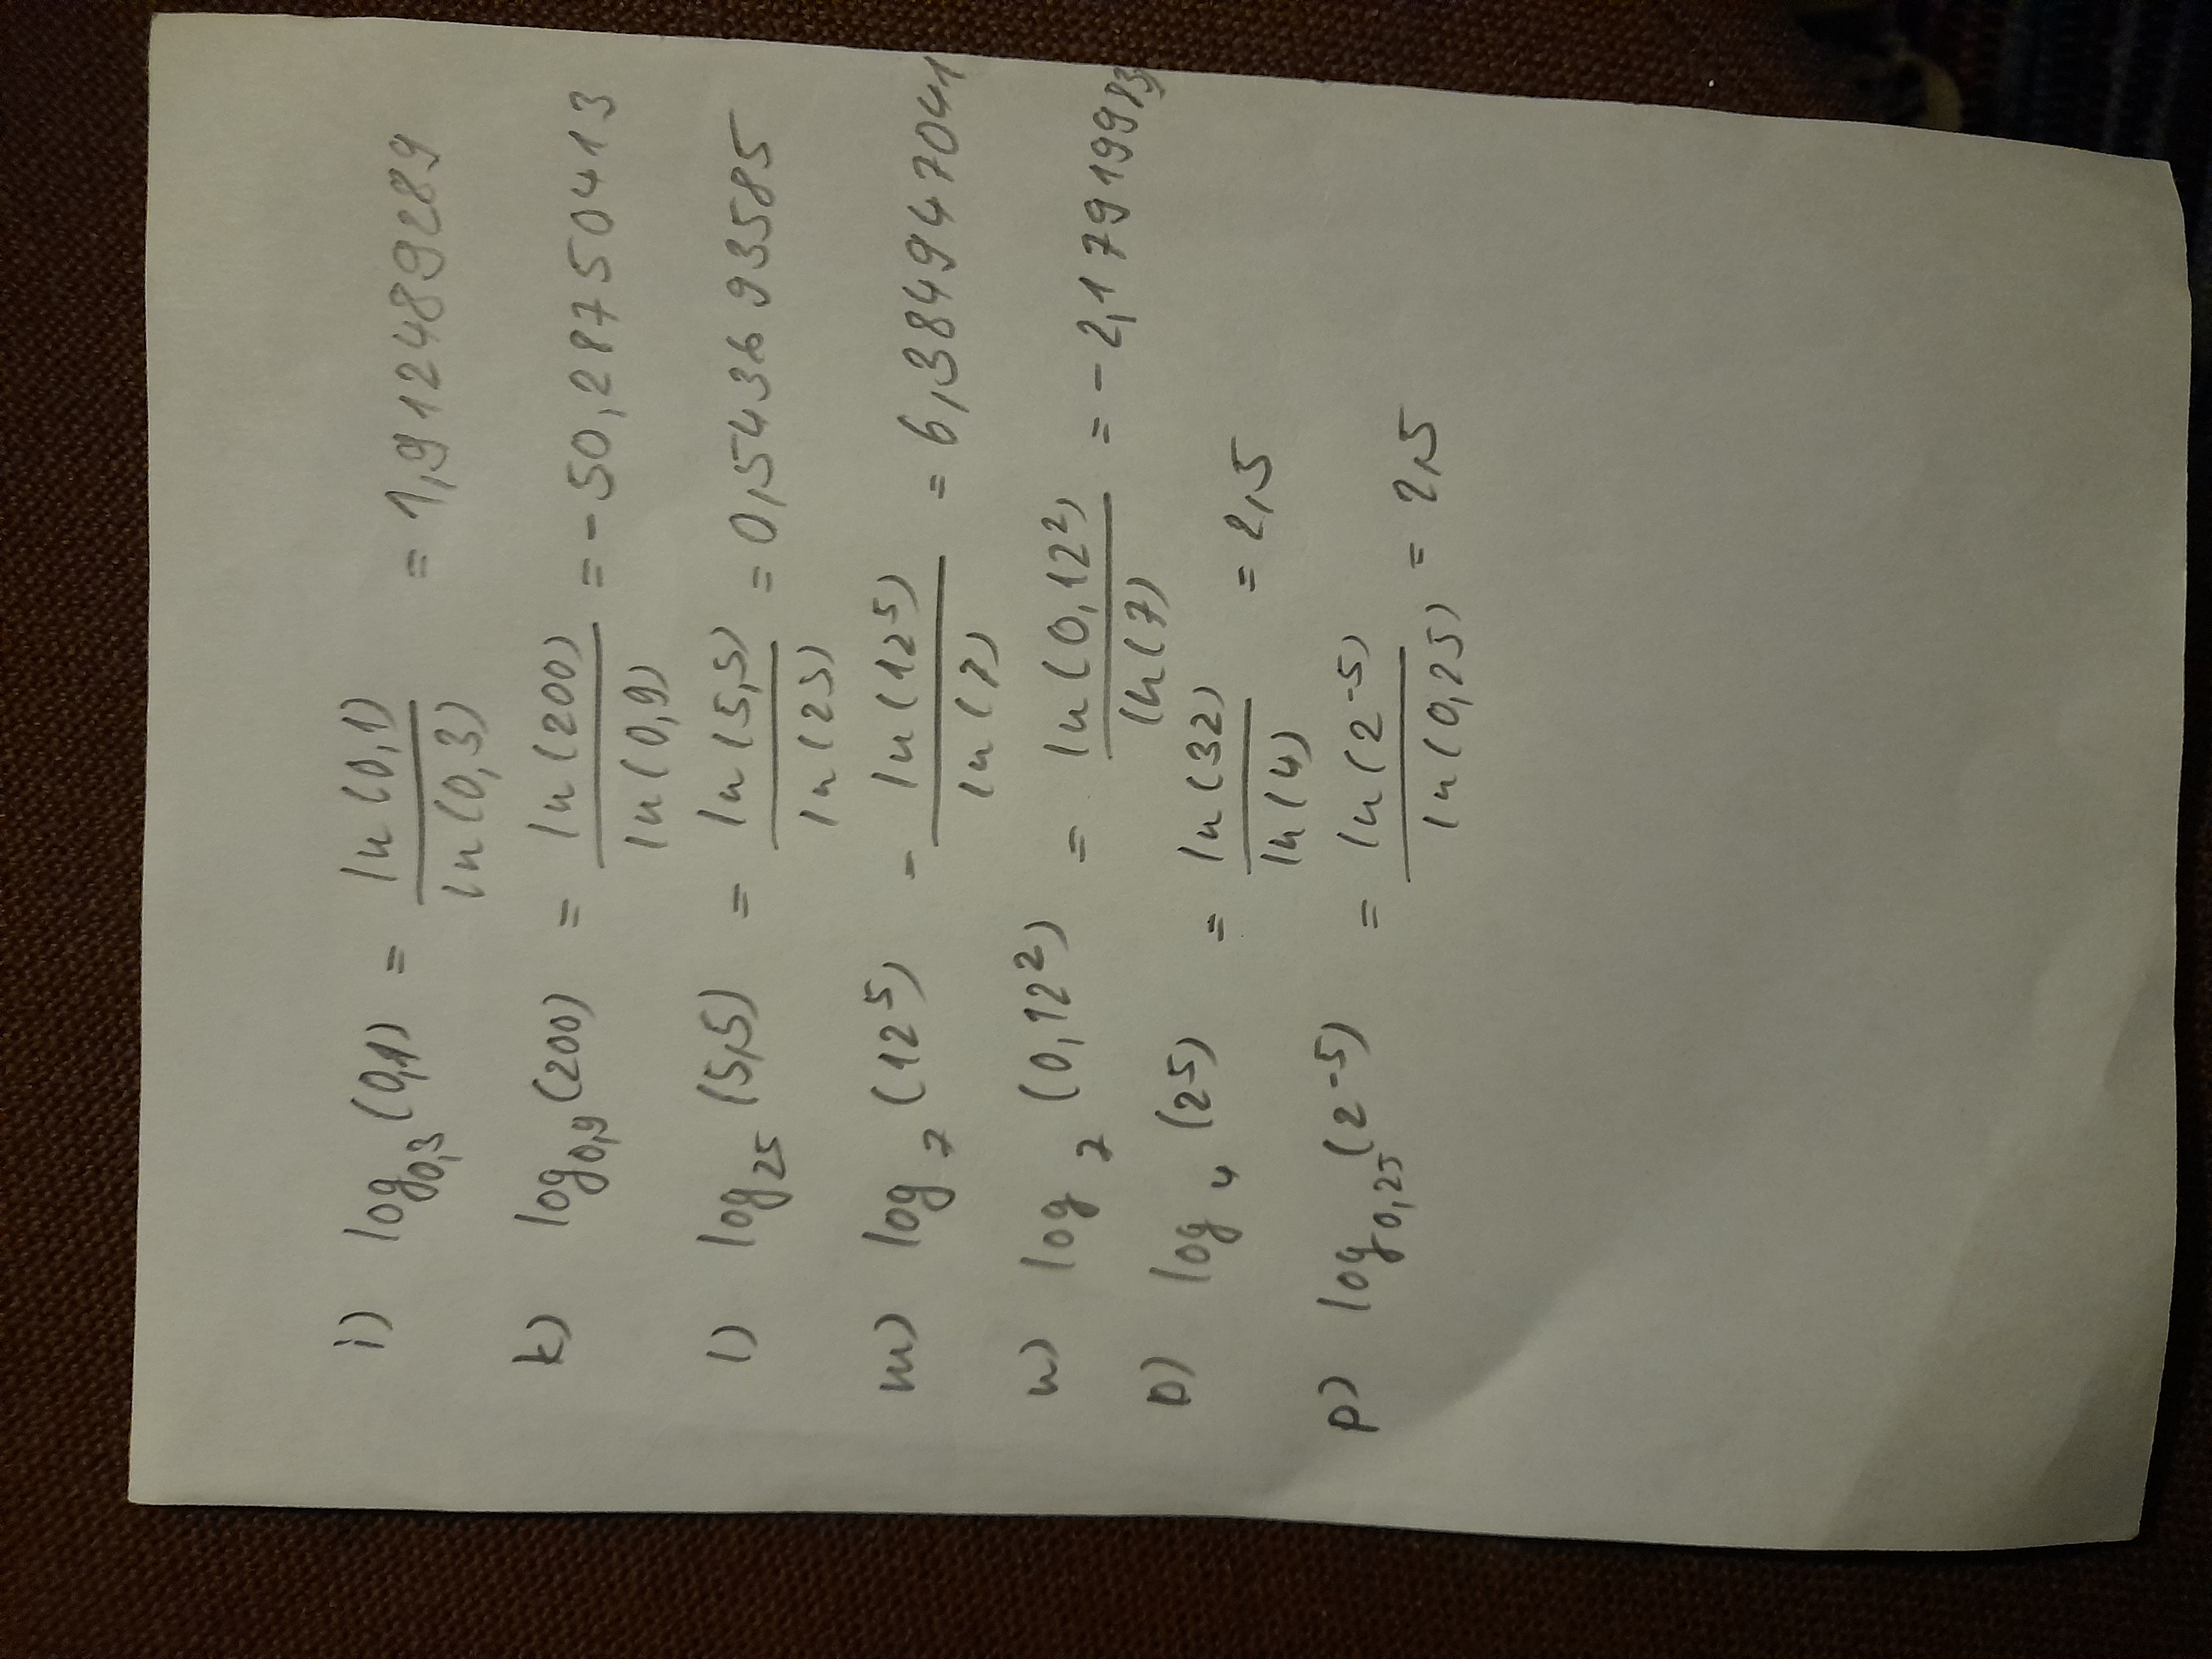 i) log₀,₃(0,1) = ln(0,1)/ln(0,3) = 1,912489289
k) log₀,₉(200) = ln(200)/ln(0,9) = -50,28750413
l) log₂₅(5,5) = ln(5,5)/ln(25) = 0,5436 93585
m) log₇(12⁵) - ln(12⁵)/ln(7) = 6,384947041
n) log₇(0,12²) = ln(0,12²)/ln(7) = -2,17919983
o) log₄(2⁵) = ln(32)/ln(4) = 2,5
p) log₀,₂₅(2⁻⁵) = ln(2⁻⁵)/ln(0,25) = 2,5